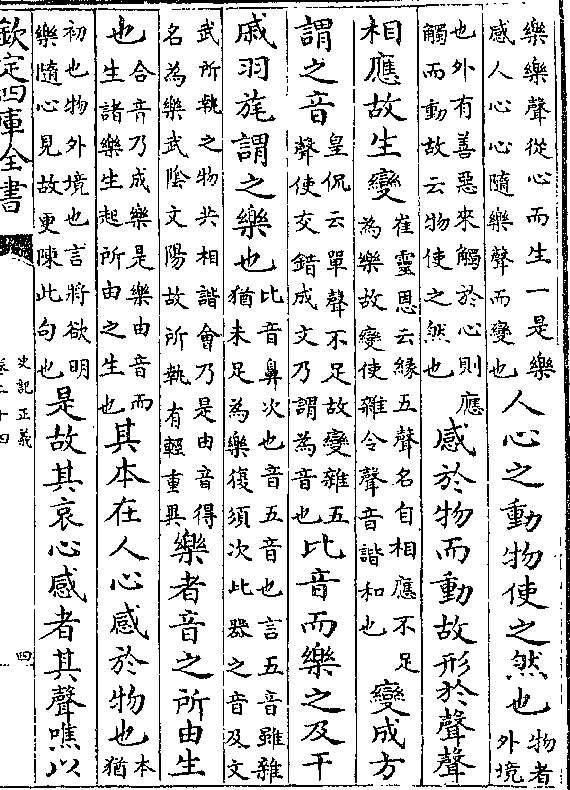 樂樂聲從心而生一是樂
感人心心隨樂聲而變也
人心之動物使之然也
物者
外境
也外有善惡來觸於心則應
觸而動故云物使之然也
感於物而動故形於聲聲
相應故生變
崔靈恩云緣五聲名自相應不足
為樂故變使雜令聲音諧和也
變成方
謂之音
皇侃云單聲不足故變雜五
聲使交錯成文乃謂為音也
比音而樂之及干
戚羽旄謂之樂也
比音鼻次也音五音也言五音雖雜
猶未足為樂復須次比器之音及文
武所執之物共相諧會乃是由音得
名為樂武陰文陽故所執有輕重異
樂者音之所由生
也
合音乃成樂是樂由音而
生諸樂生起所由之生也
其本在人心感於物也
本
猶
初也物外境也言將欲明
樂隨心見故更陳此句也
是故其哀心感者其聲噍以
欽定四庫全書
史記正義
卷二十四
四